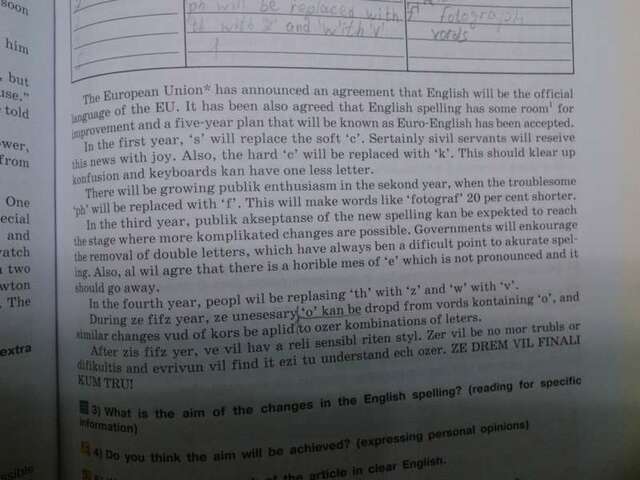 soon
him
, but
use."
told
ower,
from
One
ecial
and
vatch
n two
wton
. The
extra
ssible
ph will be replaced with
'th with 'z' and 'w'with'v'.
'f' fotograph
vords
The European Union* has announced an agreement that English will be the official
language of the EU. It has been also agreed that English spelling has some room¹ for
improvement and a five-year plan that will be known as Euro-English has been accepted.
In the first year, 's' will replace the soft 'c'. Sertainly sivil servants will reseive
this news with joy. Also, the hard 'c' will be replaced with 'k'. This should klear up
konfusion and keyboards kan have one less letter.
There will be growing publik enthusiasm in the sekond year, when the troublesome
'ph' will be replaced with 'f'. This will make words like 'fotograf' 20 per cent shorter.
In the third year, publik akseptanse of the new spelling kan be expekted to reach
the stage where more komplikated changes are possible. Governments will enkourage
the removal of double letters, which have always ben a dificult point to akurate spel-
ing. Also, al wil agre that there is a horible mes of 'e' which is not pronounced and it
should go away.
In the fourth year, peopl wil be replasing 'th' with 'z' and 'w' with 'v'.
During ze fifz year, ze unesesary 'o' kan be dropd from vords kontaining 'o', and
similar changes vud of kors be aplid to ozer kombinations of leters.
After zis fifz yer, ve vil hav a reli sensibl riten styl. Zer vil be no mor trubls or
difikultis and evrivun vil find it ezi tu understand ech ozer. ZE DREM VIL FINALI
KUM TRU!
3) What is the aim of the changes in the English spelling? (reading for specific
information)
4) Do you think the aim will be achieved? (expressing personal opinions)
of the article in clear English.